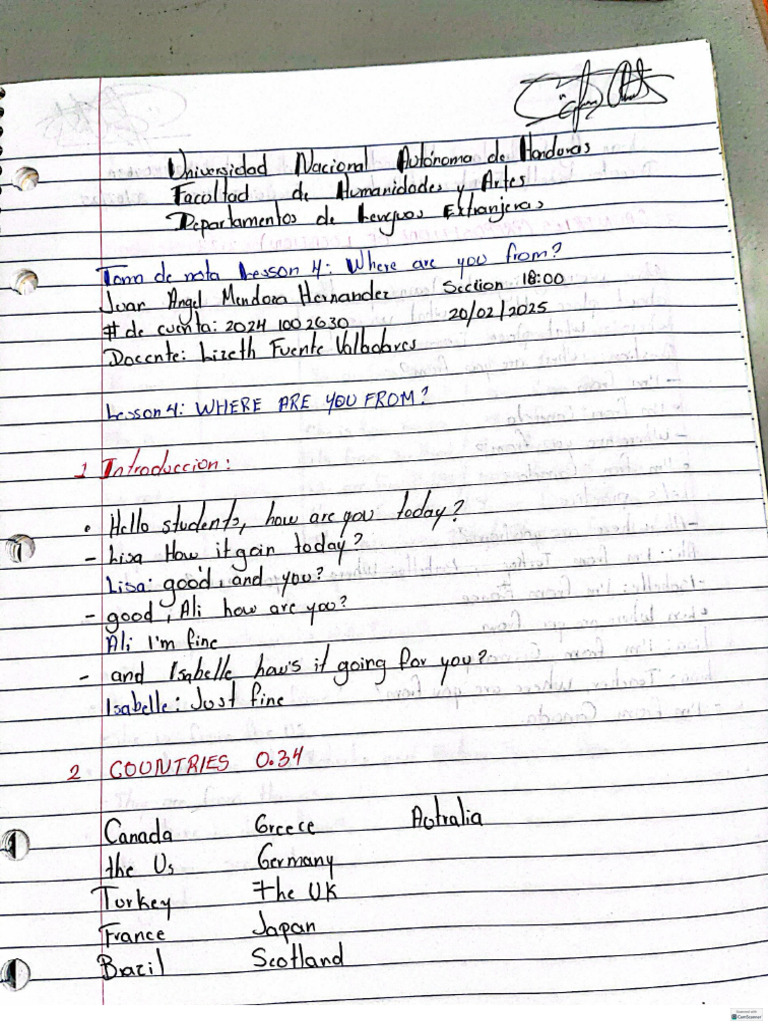 Universidad Nacional Autónoma de Honduras
Facultad de Humanidades y Artes
Departamentos de Lenguas Extranjeras
Toma de nota Lesson 4: Where are you from?
Juan Angel Mendoza Hernandez Section 18:00
# de cuenta: 2024 100 2630 20/02/2025
Docente: Lizeth Fuente Valladares
Lesson 4: WHERE ARE YOU FROM?
1 Introduccion:
• Hello students, how are you today?
- Lisa How it goin today?
Lisa: good, and you?
- good, Ali how are you?
Ali I'm fine
- and Isabelle how's it going for you?
Isabelle: Just fine
2 COUNTRIES 0.34
Canada Greece Autralia
the Us Germany
Turkey the UK
France Japan
Brazil Scotland
Scanned with
CamScanner